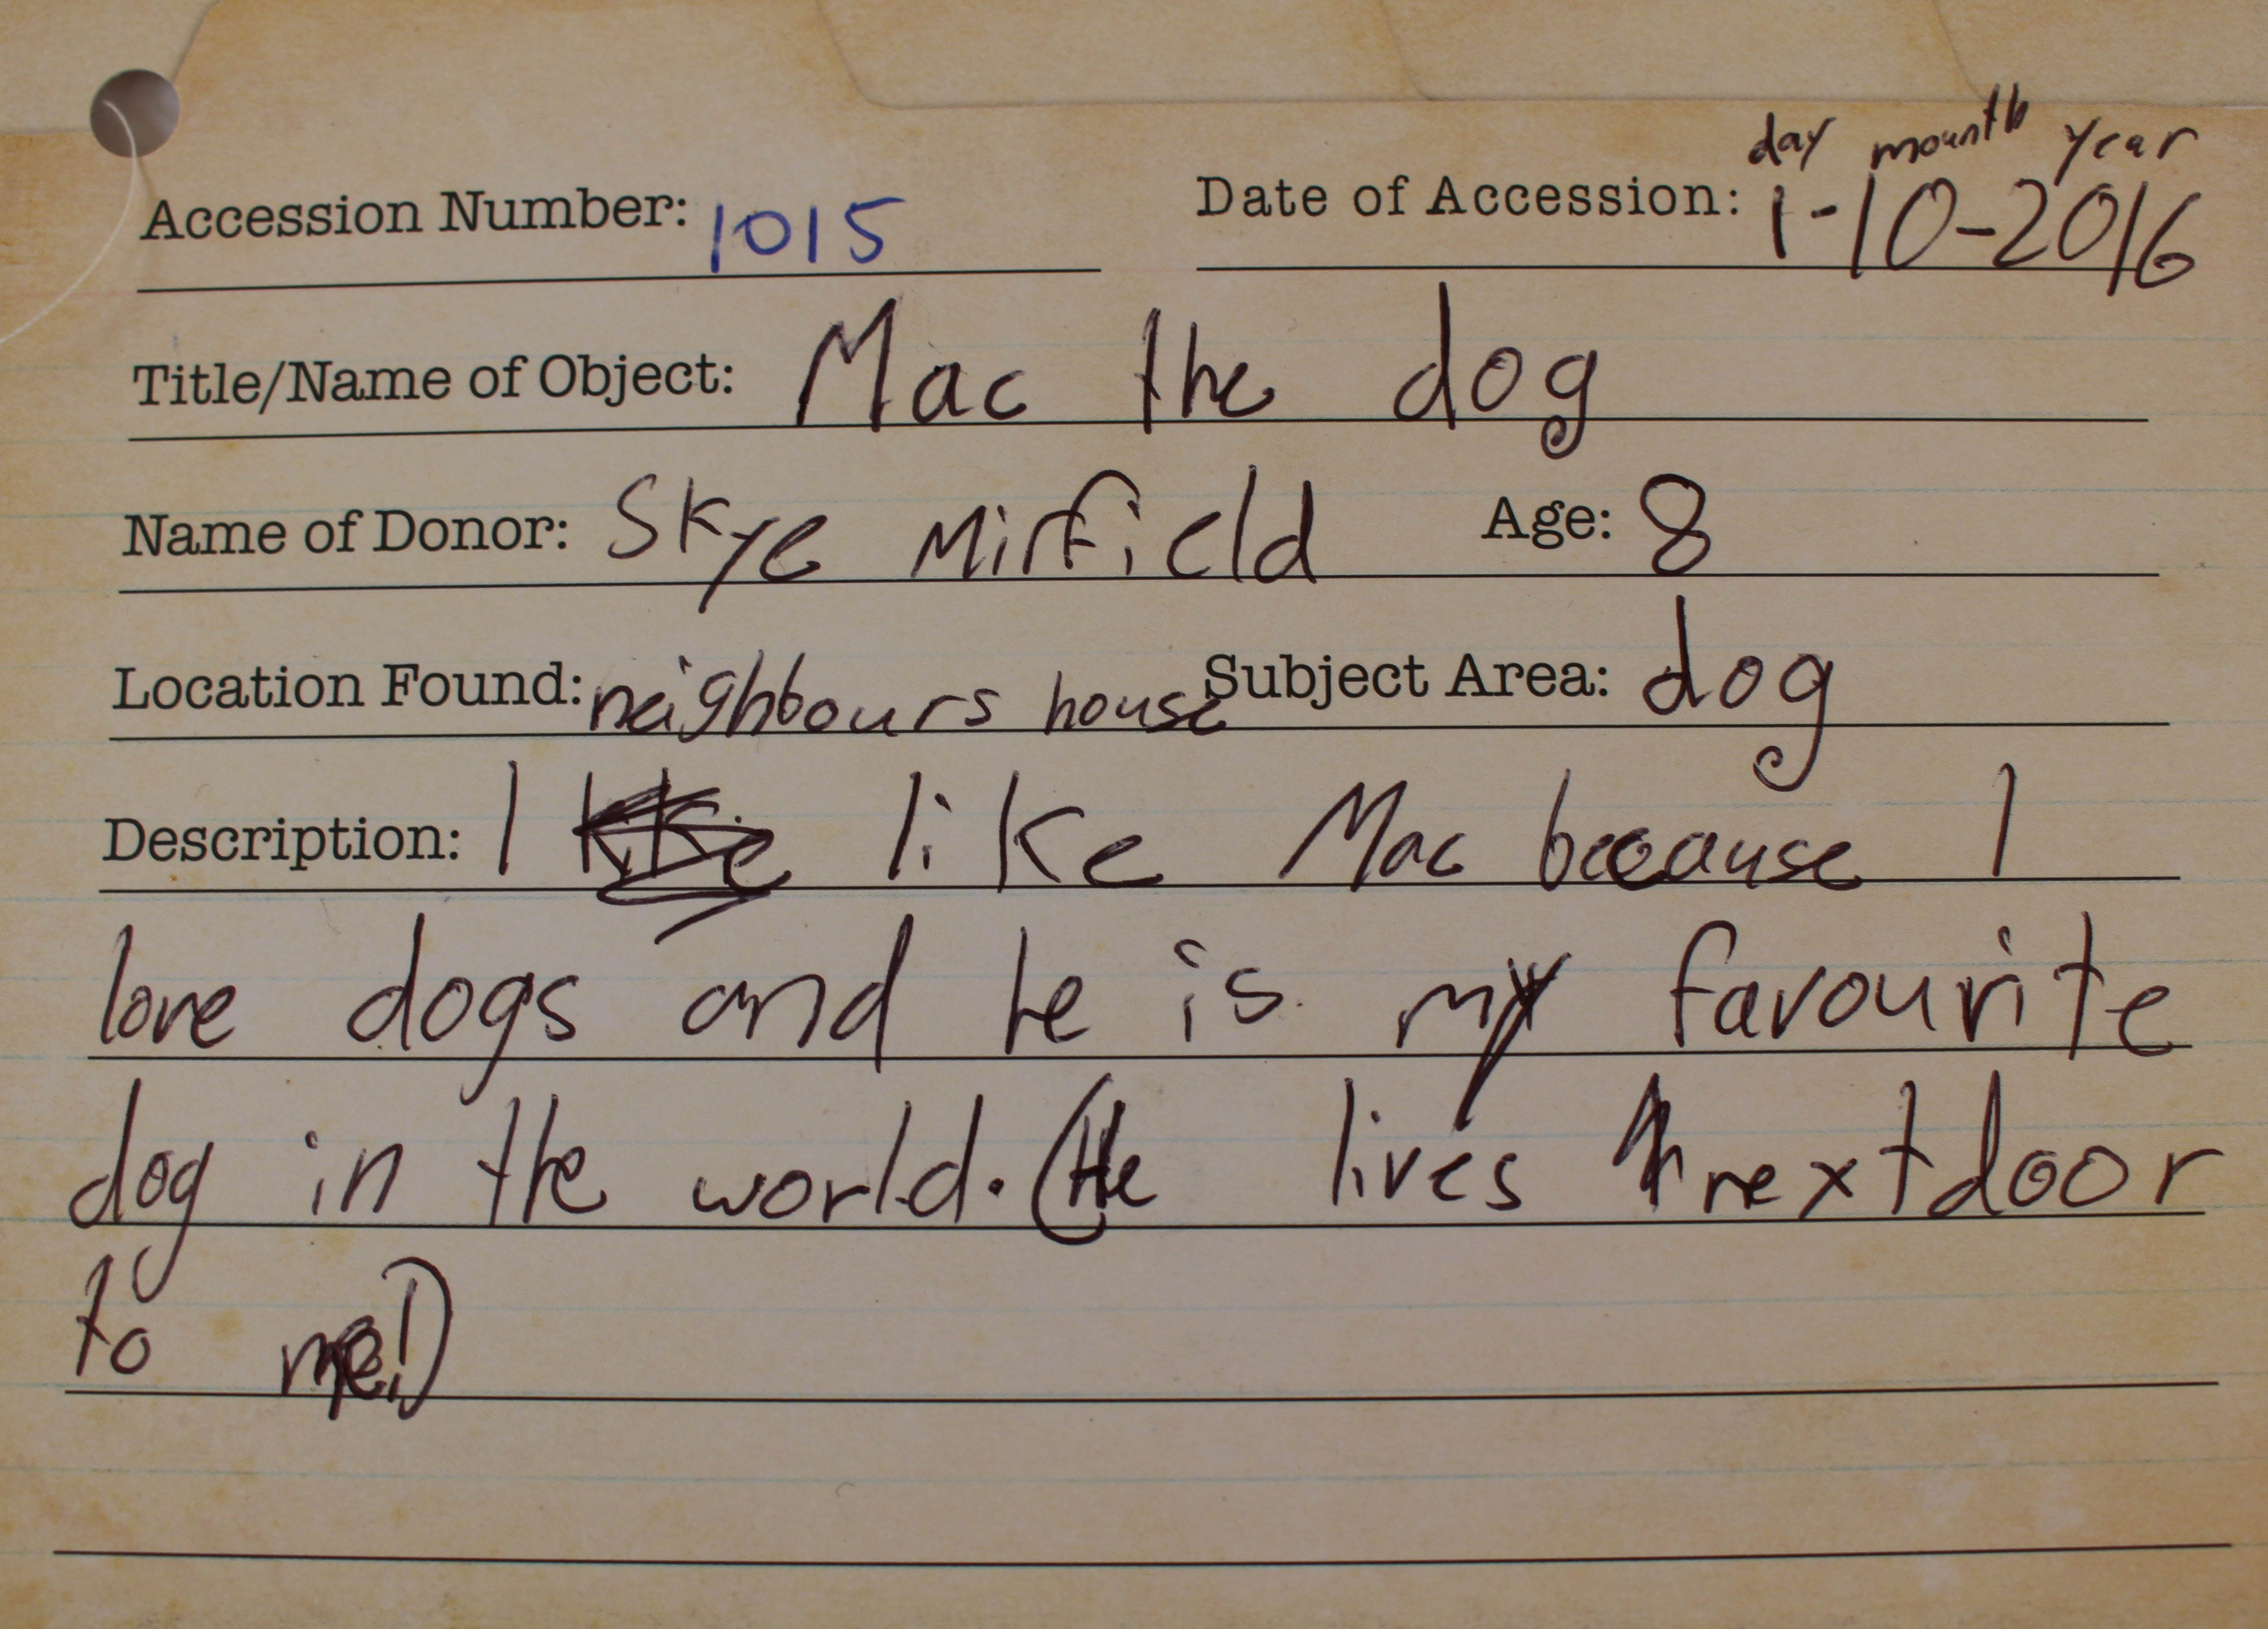 day mounth year
Accession Number: 1015 Date of Accession: 1-10-2016
Title/Name of Object: Mac the dog
Name of Donor: Skye Mirfield Age: 8
Location Found: neighbours house Subject Area: dog
Description: I like Mac because I
love dogs and he is my favourite
dog in the world. (He lives nextdoor
to me!)